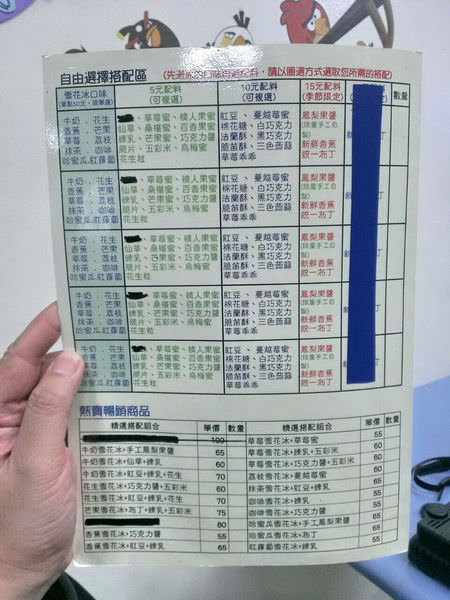 自由選擇搭配區
(先選冰的口味再選配料，請以圈選方式選取您所需的搭配)
雪花冰口味
(單點50元、限單選)
5元配料
(可複選)
10元配料
(可複選)
15元配料
(季節限定)
數量
牛奶．花生
香蕉．芒果
草莓．荔枝
抹茶．咖啡
哈蜜瓜.紅蘿蔔
、草莓蜜、情人果蜜
仙草、桑椹蜜、百香果蜜
煉乳、芒果蜜、巧克力醬
脆片、五彩米、烏梅蜜
花生粒
紅豆、蔓越莓蜜
棉花糖、白巧克力
法蘭酥、黑巧克力
脆笛酥、三色蒟蒻
草莓乖乖
鳳梨果醬
(限量手工自製)
新鮮香蕉
統一布丁
牛奶．花生
香蕉．芒果
草莓．荔枝
抹茶．咖啡
哈蜜瓜.紅蘿蔔
、草莓蜜、情人果蜜
仙草、桑椹蜜、百香果蜜
煉乳、芒果蜜、巧克力醬
脆片、五彩米、烏梅蜜
花生粒
紅豆、蔓越莓蜜
棉花糖、白巧克力
法蘭酥、黑巧克力
脆笛酥、三色蒟蒻
草莓乖乖
鳳梨果醬
(限量手工自製)
新鮮香蕉
統一布丁
牛奶．花生
香蕉．芒果
草莓．荔枝
抹茶．咖啡
哈蜜瓜.紅蘿蔔
、草莓蜜、情人果蜜
仙草、桑椹蜜、百香果蜜
煉乳、芒果蜜、巧克力醬
脆片、五彩米、烏梅蜜
花生粒
紅豆、蔓越莓蜜
棉花糖、白巧克力
法蘭酥、黑巧克力
脆笛酥、三色蒟蒻
草莓乖乖
鳳梨果醬
(限量手工自製)
新鮮香蕉
統一布丁
牛奶．花生
香蕉．芒果
草莓．荔枝
抹茶．咖啡
哈蜜瓜.紅蘿蔔
、草莓蜜、情人果蜜
仙草、桑椹蜜、百香果蜜
煉乳、芒果蜜、巧克力醬
脆片、五彩米、烏梅蜜
花生粒
紅豆、蔓越莓蜜
棉花糖、白巧克力
法蘭酥、黑巧克力
脆笛酥、三色蒟蒻
草莓乖乖
鳳梨果醬
(限量手工自製)
新鮮香蕉
統一布丁
牛奶．花生
香蕉．芒果
草莓．荔枝
抹茶．咖啡
哈蜜瓜.紅蘿蔔
、草莓蜜、情人果蜜
仙草、桑椹蜜、百香果蜜
煉乳、芒果蜜、巧克力醬
脆片、五彩米、烏梅蜜
花生粒
紅豆、蔓越莓蜜
棉花糖、白巧克力
法蘭酥、黑巧克力
脆笛酥、三色蒟蒻
草莓乖乖
鳳梨果醬
(限量手工自製)
新鮮香蕉
統一布丁
熱賣暢銷商品
精選搭配組合 單價 數量 精選搭配組合 單價 數量
100 草莓雪花冰+草莓蜜 55
牛奶雪花冰+手工鳳梨果醬 65 草莓雪花冰+煉乳+五彩米 60
牛奶雪花冰+仙草+煉乳 60 草莓雪花冰+巧克力醬+五彩米 60
牛奶雪花冰+紅豆+煉乳+花生 70 荔枝雪花冰+蔓越莓蜜 60
花生雪花冰+巧克力醬+五彩米 60 抹茶雪花冰+紅豆+煉乳 65
花生雪花冰+紅豆+煉乳 70 咖啡雪花冰+煉乳 55
芒果雪花冰+布丁+煉乳+五彩米 75 咖啡雪花冰+巧克力醬 55
80 哈蜜瓜雪花冰+手工鳳梨果醬 65
香蕉雪花冰+巧克力醬 55 哈蜜瓜雪花冰+布丁 65
香蕉雪花冰+紅豆+煉乳 65 紅蘿蔔雪花冰+煉乳 55